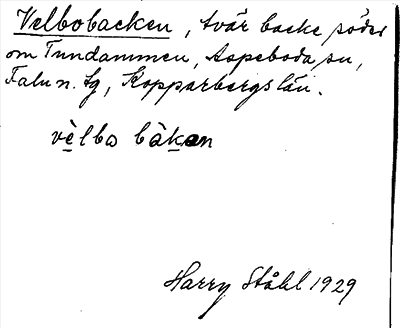 Velbobacken, tvär backe söder
om Tundammen, Aspeboda sn,
Falu n. tg, Kopparbergs län.
vèlbo bàkən
Harry Ståhl 1929